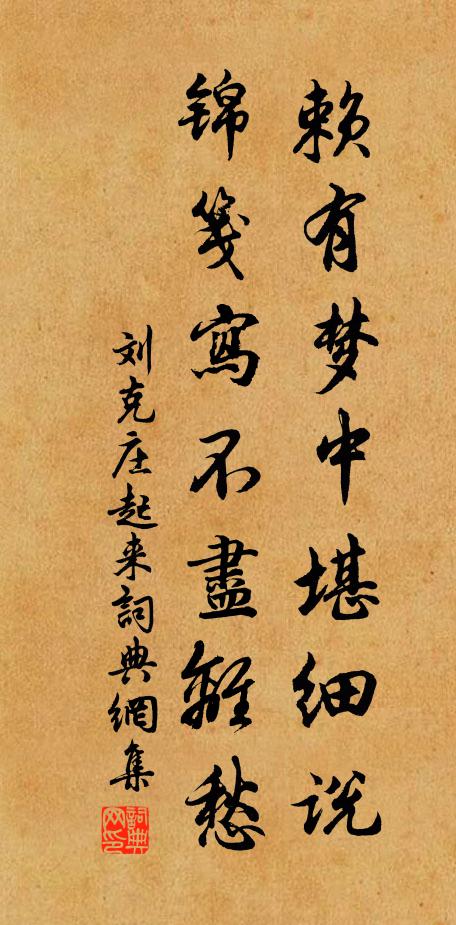 赖有梦中堪细说
锦笺寫不盡離愁
刘克庄起来詞典網集
詞典
网印